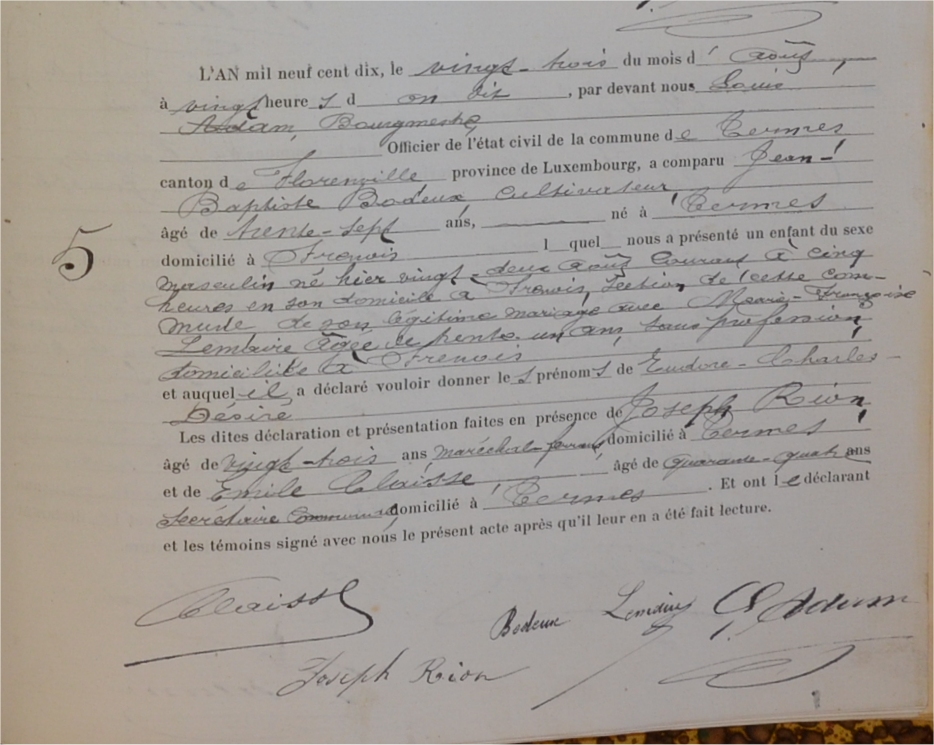 L'AN mil neuf cent dix, le vingt-trois du mois d' août,
à vingt heure s d on dit, par devant nous Louis
Adam, Bourgmestre,
Officier de l'état civil de la commune de Termes
canton de Florenville province de Luxembourg, a comparu Jean-
Baptiste Bodeux cultivateur
âgé de trente-sept ans, né à Termes
domicilié à Frenois l quel nous a présenté un enfant du sexe
5
masculin né hier vingt-deux août courant à cinq
heures en son domicile à Frenois, section de cette com-
mune de son légitime mariage avec Marie-Françoise
Lemaire âgée de trente un ans, sans profession,
domiciliée à Frenois
et auquel il a déclaré vouloir donner les prénoms de Eudore-Charles-
Désiré
Les dites déclaration et présentation faites en présence de Joseph Rion,
âgé de vingt-trois ans maréchal-ferrant domicilié à Termes
et de Emile Claisse, âgé de quarante-quatre ans
secrétaire communal, domicilié à Termes. Et ont le déclarant
et les témoins signé avec nous le présent acte après qu'il leur en a été fait lecture.
Claisse
Bodeux L. Adam
Joseph Rion